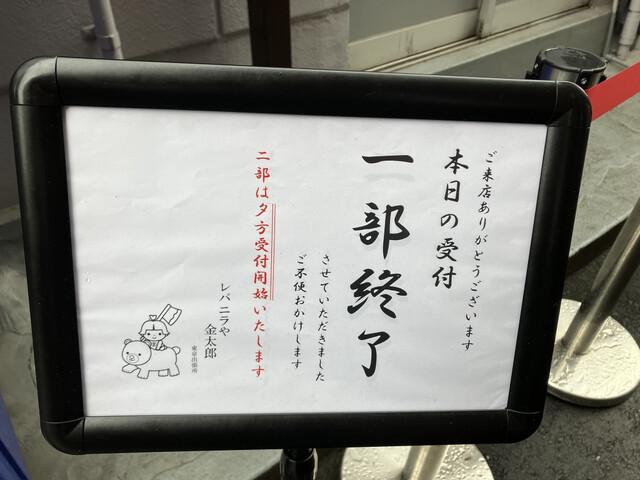 ご来店ありがとうございます
本日の受付
一部終了
させていただきました
ご不便おかけします
二部は夕方受付開始いたします
レバニラや
金太郎
東京出張所